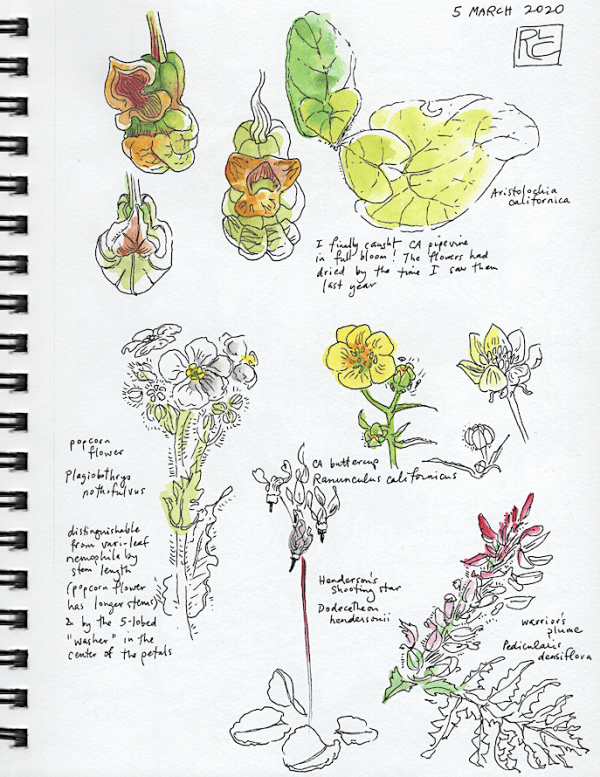 5 MARCH 2020
Aristolochia
californica
I finally caught CA pipevine
in full bloom! The flowers had
dried by the time I saw them
last year
popcorn
flower
Plagiobothrys
nothofulvus
distinguishable
from vari-leaf
nemophila by
stem length
(popcorn flower
has longer stems)
& by the 5-lobed
"washer" in the
center of the petals
CA buttercup
Ranunculus californicus
Henderson's
shooting star
Dodecatheon
hendersonii
warrior's
plume
Pedicularis
densiflora